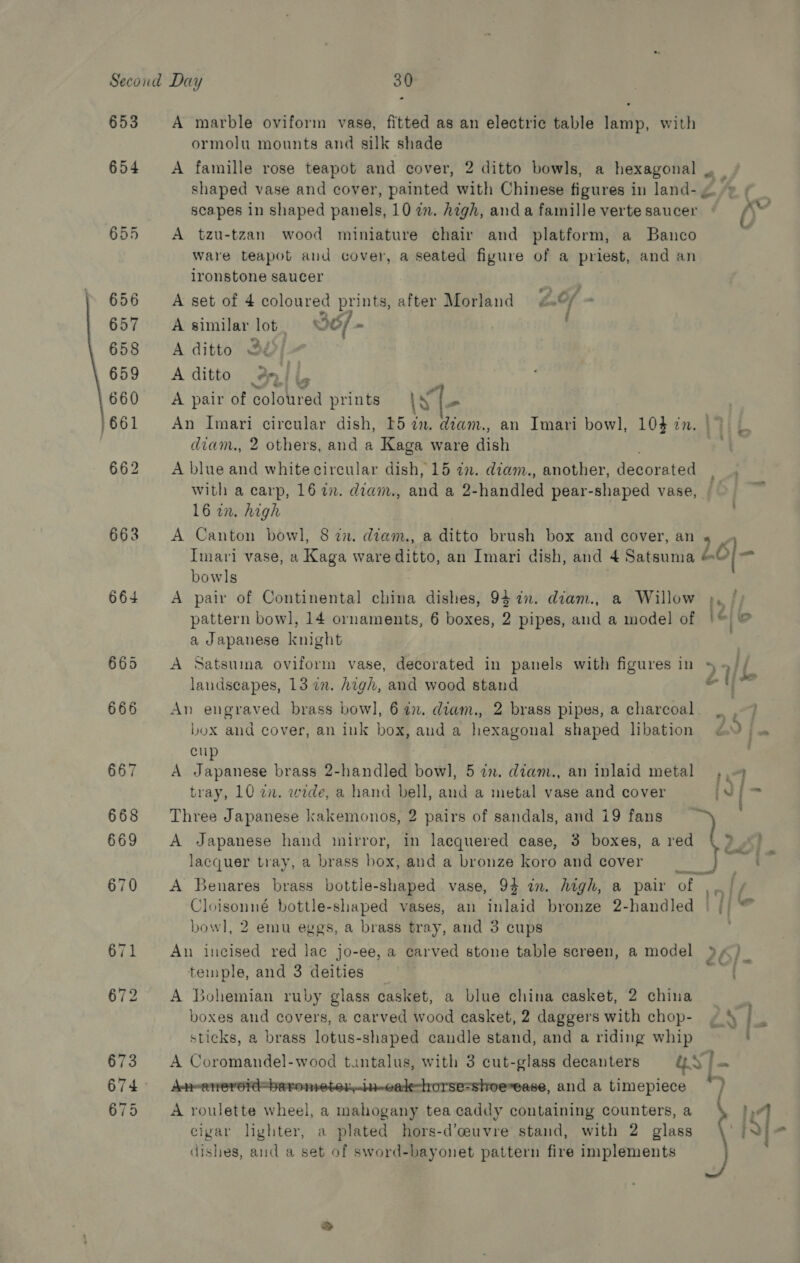 Second Day 30
653 A marble oviform vase, fitted as an electric table lamp, with
ormolu mounts and silk shade
654 A famille rose teapot and cover, 2 ditto bowls, a hexagonal
shaped vase and cover, painted with Chinese figures in land-
scapes in shaped panels, 10 in. high, and a famille verte saucer
655 A tzu-tzan wood miniature chair and platform, a Banco
ware teapot and cover, a seated figure of a priest, and an
ironstone saucer
656 A set of 4 coloured prints, after Morland
657 A similar lot
658 A ditto
659 A ditto
660 A pair of coloured prints
661 An Imari circular dish, 15 in. diam., an Imari bowl, 10½ in.
diam., 2 others, and a Kaga ware dish
662 A blue and white circular dish, 15 in. diam., another, decorated
with a carp, 16 in. diam., and a 2-handled pear-shaped vase,
16 in. high
663 A Canton bowl, 8 in. diam., a ditto brush box and cover, an
Imari vase, a Kaga ware ditto, an Imari dish, and 4 Satsuma
bowls
664 A pair of Continental china dishes, 9½ in. diam., a Willow
pattern bowl, 14 ornaments, 6 boxes, 2 pipes, and a model of
a Japanese knight
665 A Satsuma oviform vase, decorated in panels with figures in
landscapes, 13 in. high, and wood stand
666 An engraved brass bowl, 6 in. diam., 2 brass pipes, a charcoal
box and cover, an ink box, and a hexagonal shaped libation
cup
667 A Japanese brass 2-handled bowl, 5 in. diam., an inlaid metal
tray, 10 in. wide, a hand bell, and a metal vase and cover
668 Three Japanese kakemonos, 2 pairs of sandals, and 19 fans
669 A Japanese hand mirror, in lacquered case, 3 boxes, a red
lacquer tray, a brass box, and a bronze koro and cover
670 A Benares brass bottle-shaped vase, 9½ in. high, a pair of
Cloisonné bottle-shaped vases, an inlaid bronze 2-handled
bowl, 2 emu eggs, a brass tray, and 3 cups
671 An incised red lac jo-ee, a carved stone table screen, a model
temple, and 3 deities
672 A Bohemian ruby glass casket, a blue china casket, 2 china
boxes and covers, a carved wood casket, 2 daggers with chop-
sticks, a brass lotus-shaped candle stand, and a riding whip
673 A Coromandel-wood tantalus, with 3 cut-glass decanters
674 An aneroid barometer, in oak horse-shoe case, and a timepiece
675 A roulette wheel, a mahogany tea caddy containing counters, a
cigar lighter, a plated hors-d'œuvre stand, with 2 glass
dishes, and a set of sword-bayonet pattern fire implements